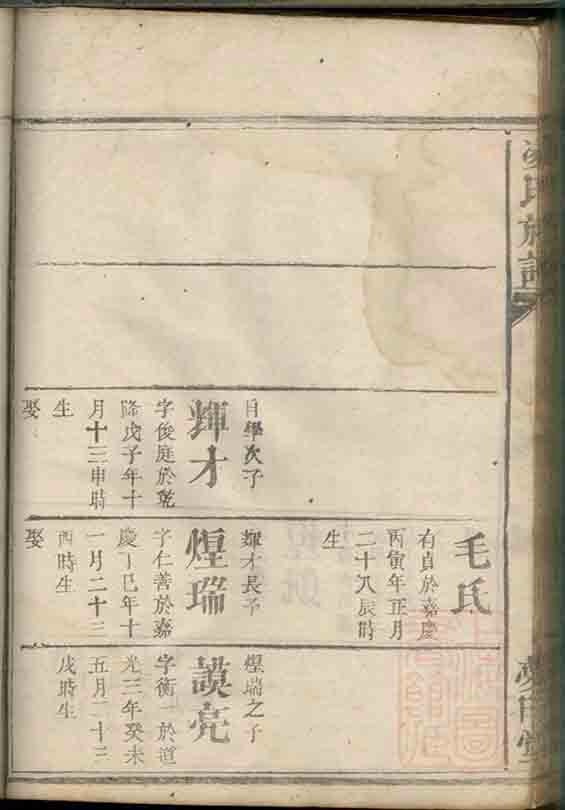 氏族譜
自學次子
輝才
字俊庭於乾
隆戊子年十
月十三申時
生
娶
毛氏
有貞於嘉慶
丙寅年正月
二十八辰時
生
輝才長子
煌瑞
字仁善於嘉
慶丁巳年十
一月二十三
酉時生
娶
煌瑞之子
謨亮
字衡一於道
光三年癸未
五月二十三
戌時生
上海圖書館藏